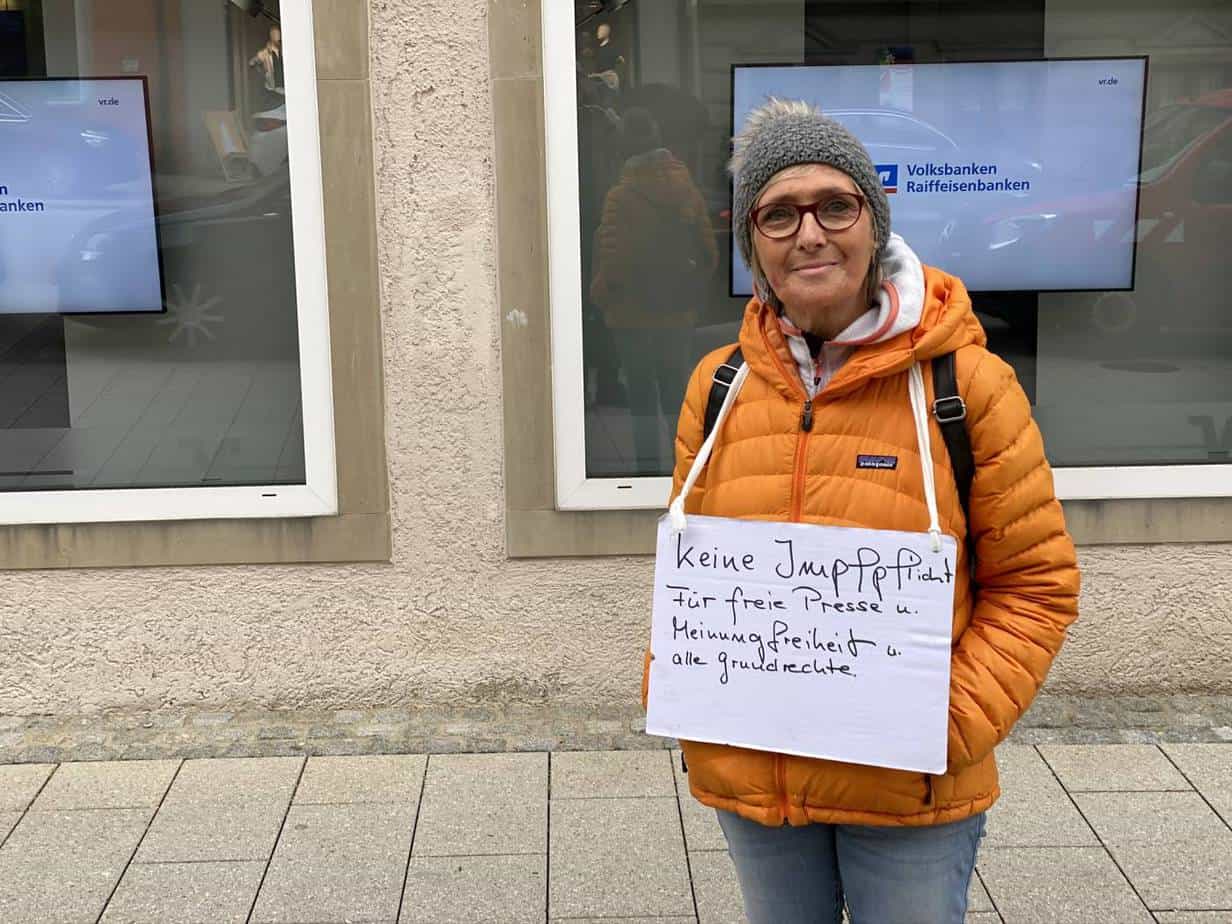 vr.de
n
anken
vr.de
Volksbanken
Raiffeisenbanken
patagonia
keine Impfpflicht
Für freie Presse u.
Meinungfreiheit u.
alle grundrechte.